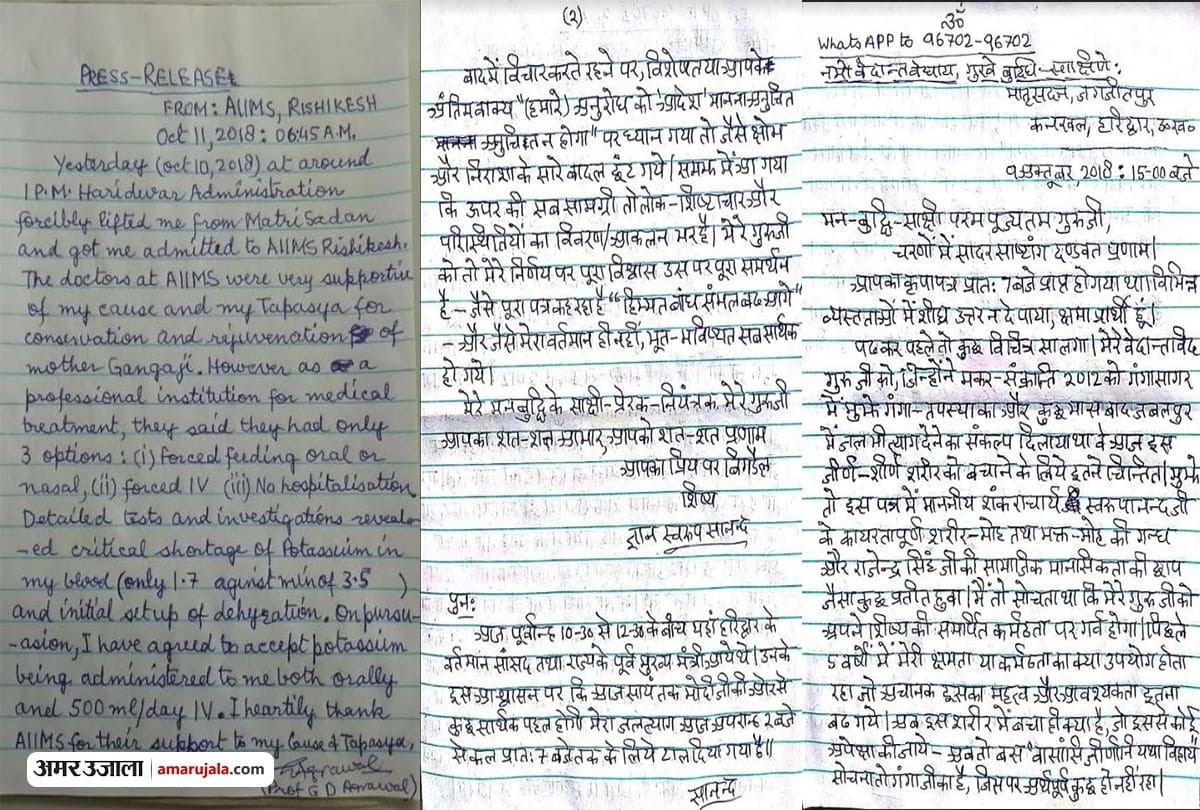 PRESS-RELEASE
FROM: AIIMS, RISHIKESH
Oct 11, 2018: 06:45 A.M.
Yesterday (oct 10, 2018) at around
1 P.M. Haridwar Administration
forcibly lifted me from Matri Sadan
and got me admitted to AIIMS Rishikesh.
The doctors at AIIMS were very supportive
of my cause and my Tapasya for
conservation and rejuvenation of
mother Gangaji. However as a
professional institution for medical
treatment, they said they had only
3 options: (i) Forced feeding oral or
nasal, (ii) forced IV (iii) No hospitalisation
Detailed tests and investigations reveal-
-ed critical shortage of Potassium in
my blood (only 1.7 aginst min of 3.5 )
and initial setup of dehyration. On pursu-
-asion, I have agreed to accept potassium
being administered to me both orally
and 500 ml/day IV. I heartily thank
AIIMS for their support to my Cause & Tapasya,
Agrawal
(Prof G D Agrawal)
अमर उजाला amarujala.com
(२)
बाद में विचार करते रहने पर, विशेषतया आपके
अंतिम वाक्य "(हमारे) अनुरोध को 'आदेश' मानना अनुचित
अनुचित न होगा" पर ध्यान गया तो जैसे क्षोभ
और निराशा के सारे बादल छंट गये। समझ में आ गया
कि ऊपर की सब सामग्री तो लोक-शिष्टाचार और
परिस्थितियों का विवरण/आकलन भर है। मेरे गुरुजी
को तो मेरे निर्णय पर पूरा विश्वास उस पर पूरा समर्थन
है - जैसे पूरा पत्र कह रहा है "हिम्मत बांध संभल बढ़ आगे"
- और जैसे मेरा वर्तमान ही नहीं, भूत-भविष्यत सब सार्थक
हो गये।
मेरे मन बुद्धि के साक्षी-प्रेरक-नियंत्रक मेरे गुरुजी
आपका शत-शत आभार, आपको शत-शत प्रणाम
आपका प्रिय पर बिगडैल
शिष्य
ज्ञान स्वरूप सानन्द
पुनः
आज, पूर्वान्ह 10-30 से 12-30 के बीच यहाँ हरिद्वार के
वर्तमान सांसद तथा राज्य के पूर्व मुख्य मंत्री आये थे। उनके
इस आश्वासन पर कि आज सायं तक मोदी जी की ओर से
कुछ सार्थक पहल होगी मेरा जलत्याग आज अपरान्ह 2 बजे
से कल प्रातः 7 बजे तक के लिये टाल दिया गया है॥
सानन्द
ॐ
WhatsAPP to 96702-96702
नमो वेदान्तवेद्याय, गुरवे बुद्धि-साक्षिणे:
मातृसदन, जगजीतपुर
कनखल, हरिद्वार, उ०ख०
9 अक्तूबर, 2018: 15-00 बजे
मन-बुद्धि-साक्षी परम पूज्यतम गुरुजी,
चरणों में सादर साष्टांग दण्डवत प्रणाम।
आपका कृपापत्र प्रातः 7 बजे प्राप्त हो गया था। विभिन्न
व्यस्तताओं में शीघ्र उत्तर न दे पाया, क्षमा प्रार्थी हूं।
पढ़कर पहले तो कुछ विचित्र सा लगा। मेरे वेदान्तविद
गुरु जी को, जिन्होंने मकर-संक्रान्ति 2012 को गंगासागर
में मुझे गंगा-तपस्या का और कुछ मास बाद जबलपुर
में जल भी त्याग देने का संकल्प दिलाया था वे आज इस
जीर्ण-शीर्ण शरीर को बचाने के लिये इतने चिन्तित। मुझे
तो इस पत्र में माननीय शंकराचार्य स्वरूपानन्द जी
के कायरतापूर्ण शरीर-मोह तथा भक्त-मोह की गन्ध
और राजेन्द्र सिंह जी की सामाजिक मानसिकता की छाप
जैसा कुछ प्रतीत हुवा। मैं तो सोचता था कि मेरे गुरु जी को
अपने शिष्य की समर्पित कर्मठता पर गर्व होगा। पिछले
5 वर्षों में मेरी क्षमता या कर्मठता का क्या उपयोग होता
रहा जो अचानक इसका महत्व और आवश्यकता इतना
बढ़ गये। अब इस शरीर में बचा ही क्या है, जो इससे कोई
अपेक्षा की जाये - अब तो बस "वासांसि जीर्णानि यथा विहाय"
सोचना तो गंगा जी का है, जिस पर अर्थपूर्ण कुछ हो नहीं रहा।